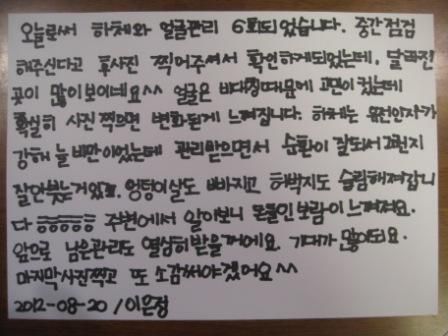 오늘로써 하체와 얼굴관리 6회되었습니다. 중간점검
해주신다고 후사진 찍어주셔서 확인하게되었는데, 달라진
곳이 많이보이네요^^ 얼굴은 비대칭때문에 고민이 컸는데
확실히 사진 찍으면 변화된게 느껴집니다. 하체는 유전인자가
강해 늘 비만이었는데 관리받으면서 순환이 잘되서 그런지
잘안붓는거있죠. 엉덩이살도 빠지고 허벅지도 슬림해져갑니
다 ㅎㅎㅎㅎㅎ 주변에서 알아보니 돈들인보람이 느껴져요.
앞으로 남은관리도 열심히받을꺼에요. 기대가 많이되요.
마지막사진찍고 또 소감써야겠어요^^
2012-08-20 / 이은정